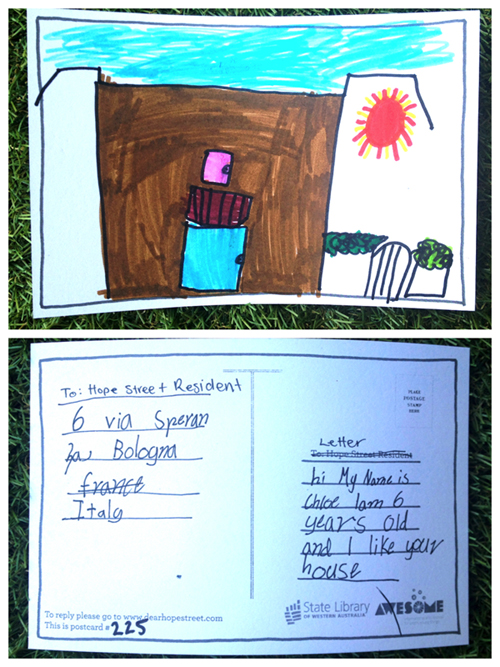 To: Hope Street Resident
6 via Speran
za Bologna
france
Italy
To reply please go to www.dearhopestreet.com
This is postcard # 225
PLACE
POSTAGE
STAMP
HERE
Letter
To: Hope Street Resident
hi My Name is
Chloe I am 6
years old
and I like your
house
State Library
OF WESTERN AUSTRALIA
AWESOME